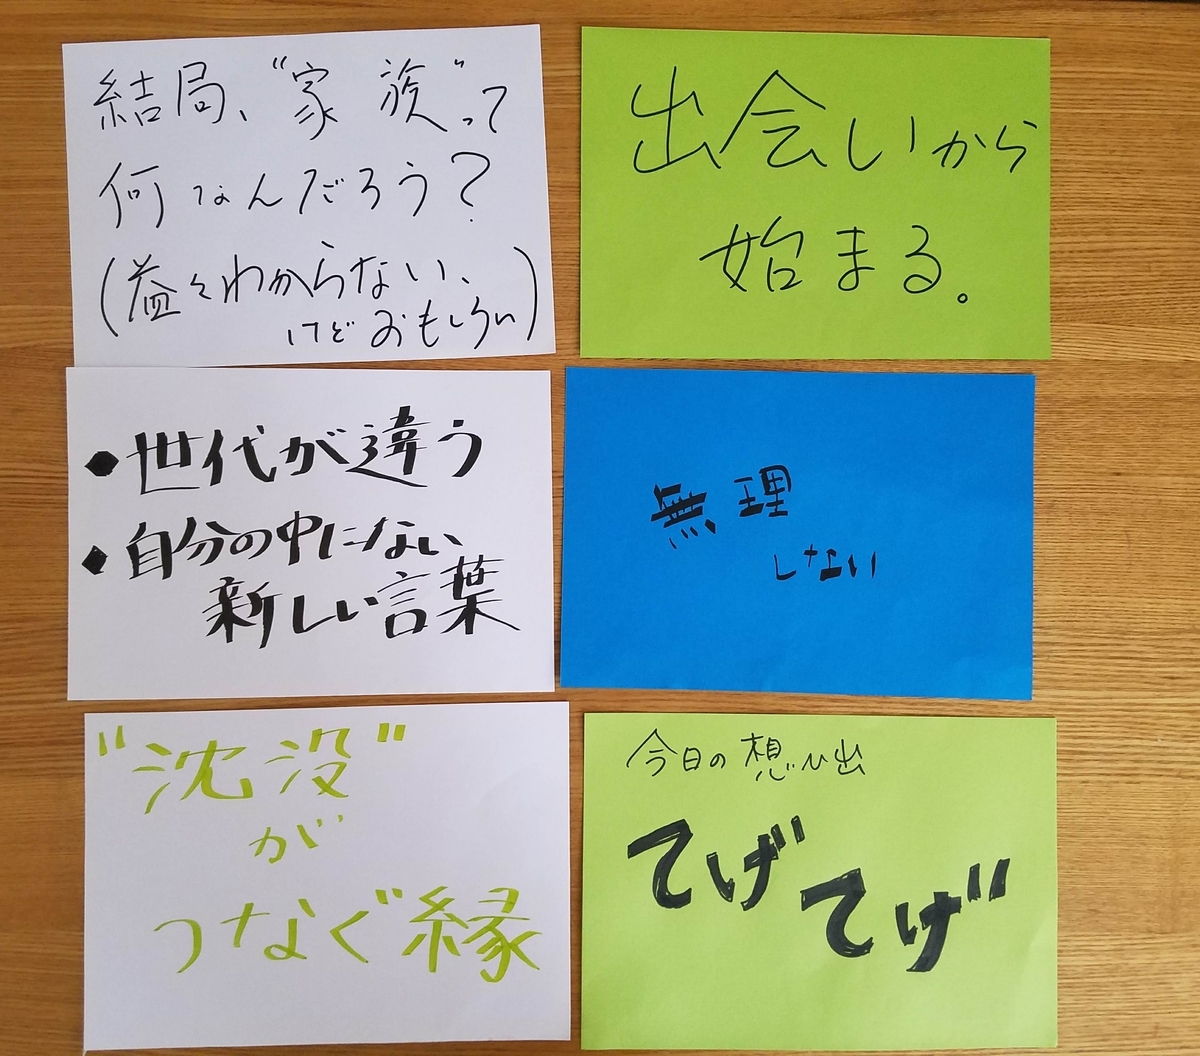 結局、“家族”って
何なんだろう？
(益々わからない、
けどおもしろい)
出会いから
始まる。
・世代が違う
・自分の中にない
新しい言葉
無理
しない
“沈没”
が
つなぐ縁
今日の想ひ出
てげ
てげ